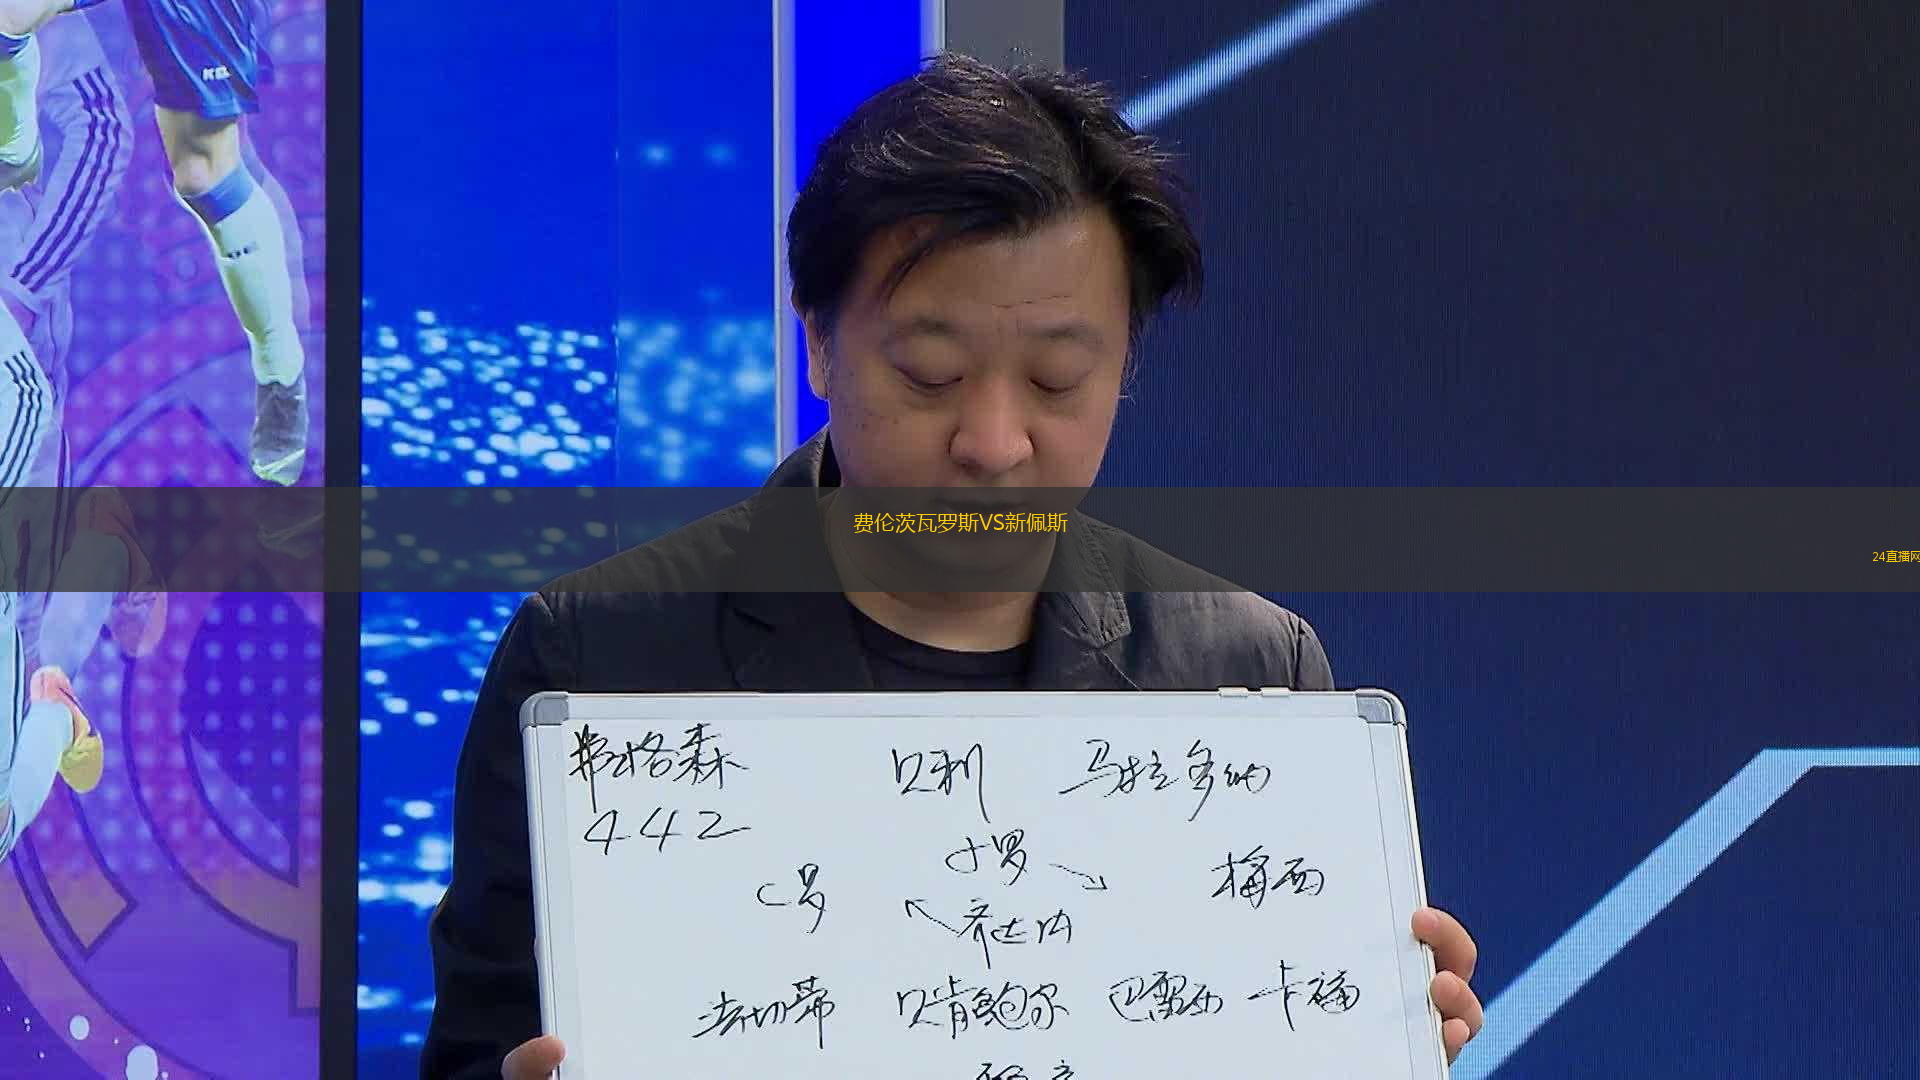 费伦茨瓦罗斯VS新佩斯
24直播网
弗格森 贝利 马拉多纳
442
小罗
C罗 梅西
齐达内
法切蒂 贝肯鲍尔 巴雷西 卡福